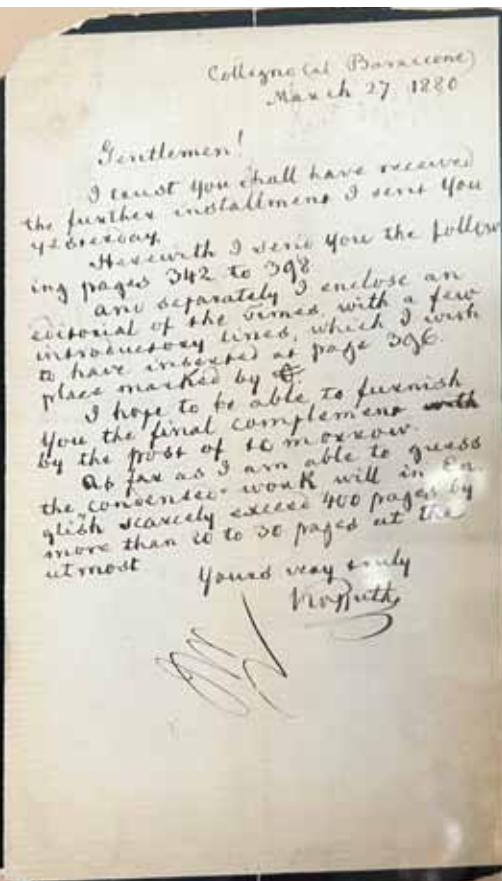 Collegno (al Baraccone)
March 27 1880
Gentlemen!
I trust you shall have received
the further installment I sent you
yesterday.
Herewith I send you the follow
ing pages 342 to 398
and separately I enclose an
editorial of the times with a few
introductory lines, which I wish
to have inserted at page 396.
place marked by
I hope to be able to furnish
you the final complement with
by the post of to morrow.
As far as I am able to guess
the "condensed" work will in En
glish scarcely exceed 400 pages by
more than 20 to 30 pages at the
utmost
Yours very truly